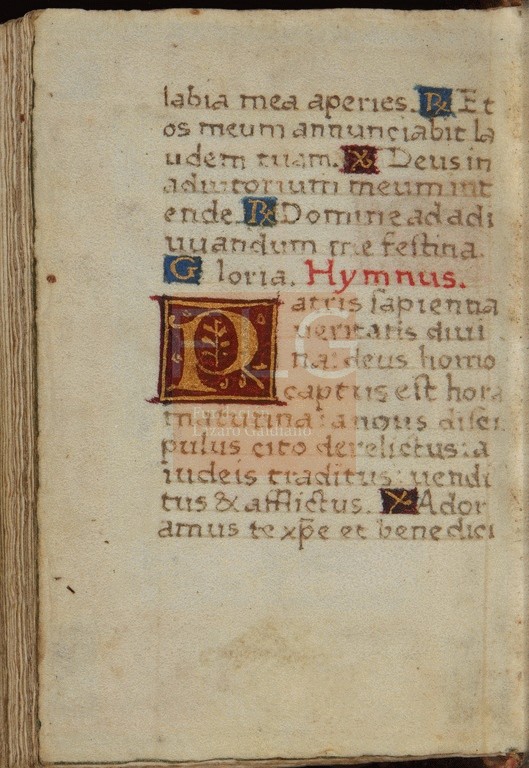 labia mea aperies. ℟ Et
os meum annunciabit la
udem tuam. ℣ Deus in
adiutorium meum int
ende. ℟ Domine ad adi
uuandum me festina.
Gloria. Hymnus.
Patris sapientia
ueritatis diui
na: deus homo
captus est hora
matutina: a notis disci
pulus cito derelictus: a
iudeis traditus: uendi
tus & afflictus. ℣ Ador
amus te xp̄e et benedici
FLG
Fundación
Lázaro Galdiano